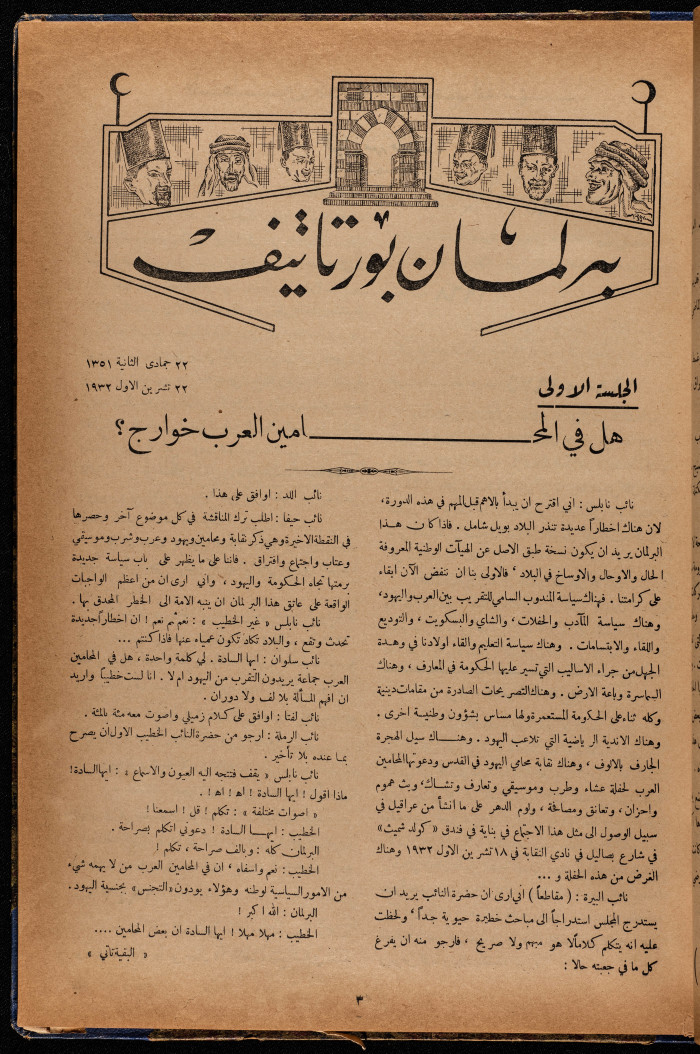 برلمان بورتاتيف
٢٢ جمادى الثانية ١٣٥١
٢٢ تشرين الاول ١٩٣٢
الجلسة الاولى
هل في المحـــــامين العرب خوارج ؟
نائب نابلس : اني اقترح ان يبدأ بالاهم قبل المهم في هذه الدورة ،
لان هناك اخطاراً عديدة تنذر البلاد بويل شامل . فاذا كان هذا
البرلمان يريد ان يكون نسخة طبق الاصل عن الهيآت الوطنية المعروفة
الحال والاوحال والاوساخ في البلاد ' فالاولى بنا ان ننفض الآن ابقاء
على كرامتنا . فهناك سياسة المندوب السامي للتقريب بين العرب واليهود،
وهناك سياسة المآدب والحفلات ، والشاي والبسكويت ، والتوديع
واللقاء والابتسامات . وهناك سياسة التعليم والقاء اولادنا في وهدة
الجهل من جراء الاساليب التي تسير عليها الحكومة في المعارف ، وهناك
السماسرة وباعة الارض . وهناك التصريحات الصادرة من مقامات دينية
وكله ثناء على الحكومة المستعمرة ولها مساس بشؤون وطنية اخرى .
وهناك الاندية الرياضية التي تلاعب اليهود . وهنـــاك سيل الهجرة
الجارف بالالوف ، وهناك نقابة محامي اليهود في القدس ودعوتها المحامين
العرب لحفلة عشاء وطرب وموسيقى وتعارف وتشاك ، وبث هموم
واحزان ، وتعانق ومصافحة ، ولوم الدهر على ما أنشأ من عراقيل في
سبيل الوصول الى مثل هذا الاجتماع في بناية في فندق « كولد شميث »
في شارع بصاليل في نادي النقابة في ١٨ تشرين الاول ١٩٣٢ وهناك
الغرض من هذه الحفلة و ...
نائب البيرة : ( مقاطعاً ) اني ارى ان حضرة النائب يريد ان
يستدرج المجلس استدراجاً الى مباحث خطيرة حيوية جداً ' ولحظت
عليه انه يتكلم كلاماً لا هو مبهم ولا صريح ، فارجو منه ان يفرغ
كل ما في جعبته حالا :
نائب اللد : اوافق على هذا .
نائب حيفا : اطلب ترك المناقشة في كل موضوع آخر وحصرها
في النقطة الاخيرة وهي ذكر نقابة ومحامين ويهود وعرب وشرب وموسيقى
وعتاب واجتماع وافتراق . فاننا على ما يظهر على باب سياسة جديدة
برمتها تجاه الحكومة واليهود ، واني ارى ان من اعظم الواجبات
الواقعة على عاتق هذا البرلمان ان ينبه الامة الى الخطر المحدق بها .
نائب نابلس « غير الخطيب » : نعم نعم ! ان اخطاراً جديدة
تحدث وتقع ، والبلاد تكاد تكون عمياء عنها فاذا كنتم ...
نائب سلوان : ايها السادة . لي كلمة واحدة ، هل في المحامين
العرب جماعة يريدون التقرب من اليهود ام لا . انا لست خطيباً واريد
ان افهم المسألة بلا لف ولا دوران .
نائب لفتا : اوافق على كلام زميلي واصوت معه مئة بالمئة .
نائب الرملة : ارجو من حضرة النائب الخطيب الاول ان يصرح
بما عنده بلا تأخير .
نائب نابلس « يقف فتتجه اليه العيون والاسماع » : ايها السادة !
ماذا اقول ! ايها السادة ! اه ! اه ! .
« اصوات مختلفة » : تكلم ! قل ! اسمعنا !
الخطيب : ايهــا السادة ! دعوني اتكلم بصراحة .
البرلمان كله : وبالف صراحة ، تكلم !
الخطيب : نعم واسفاه ، ان في المحامين العرب من لا يهمه شيء
من الامور السياسية لوطنه وهؤلاء يودون « التجنس » بجنسية اليهود .
البرلمان : الله اكبر !
الخطيب : مهلا مهلا ! ايها السادة ان بعض المحامين ....
« البقية تأتي »
٣